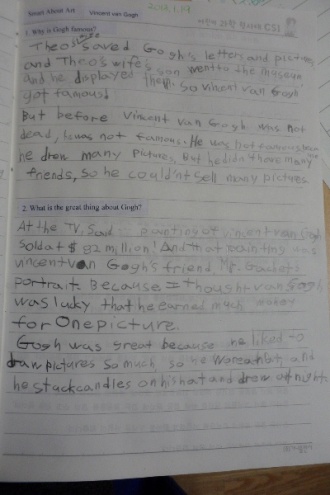 Smart About Art Vincent van Gogh
1. Why is Gogh famous?
Theo saved Gogh's letters and pictures
and Theo's wife's son went to the museum
and he displayed them. So Vincent van Gogh
got famous!
But before Vincent van Gogh was not
dead, he was not famous. He was not famous
he drew many pictures, but he didn't have many
friends, so he couldn't sell many pictures
2. What is the great thing about Gogh?
At the TV, said painting of Vincent van Gogh
sold at $ 82 million! And that painting was
Vincent van Gogh's friend, Mr. Gachet's
portrait. Because I thought van Gogh
was luky that he earned much
for One picture.
Gogh was great because he liked to
draw pictures so much so he wore a hat, and
he stuck candles on his hat and drew at night.